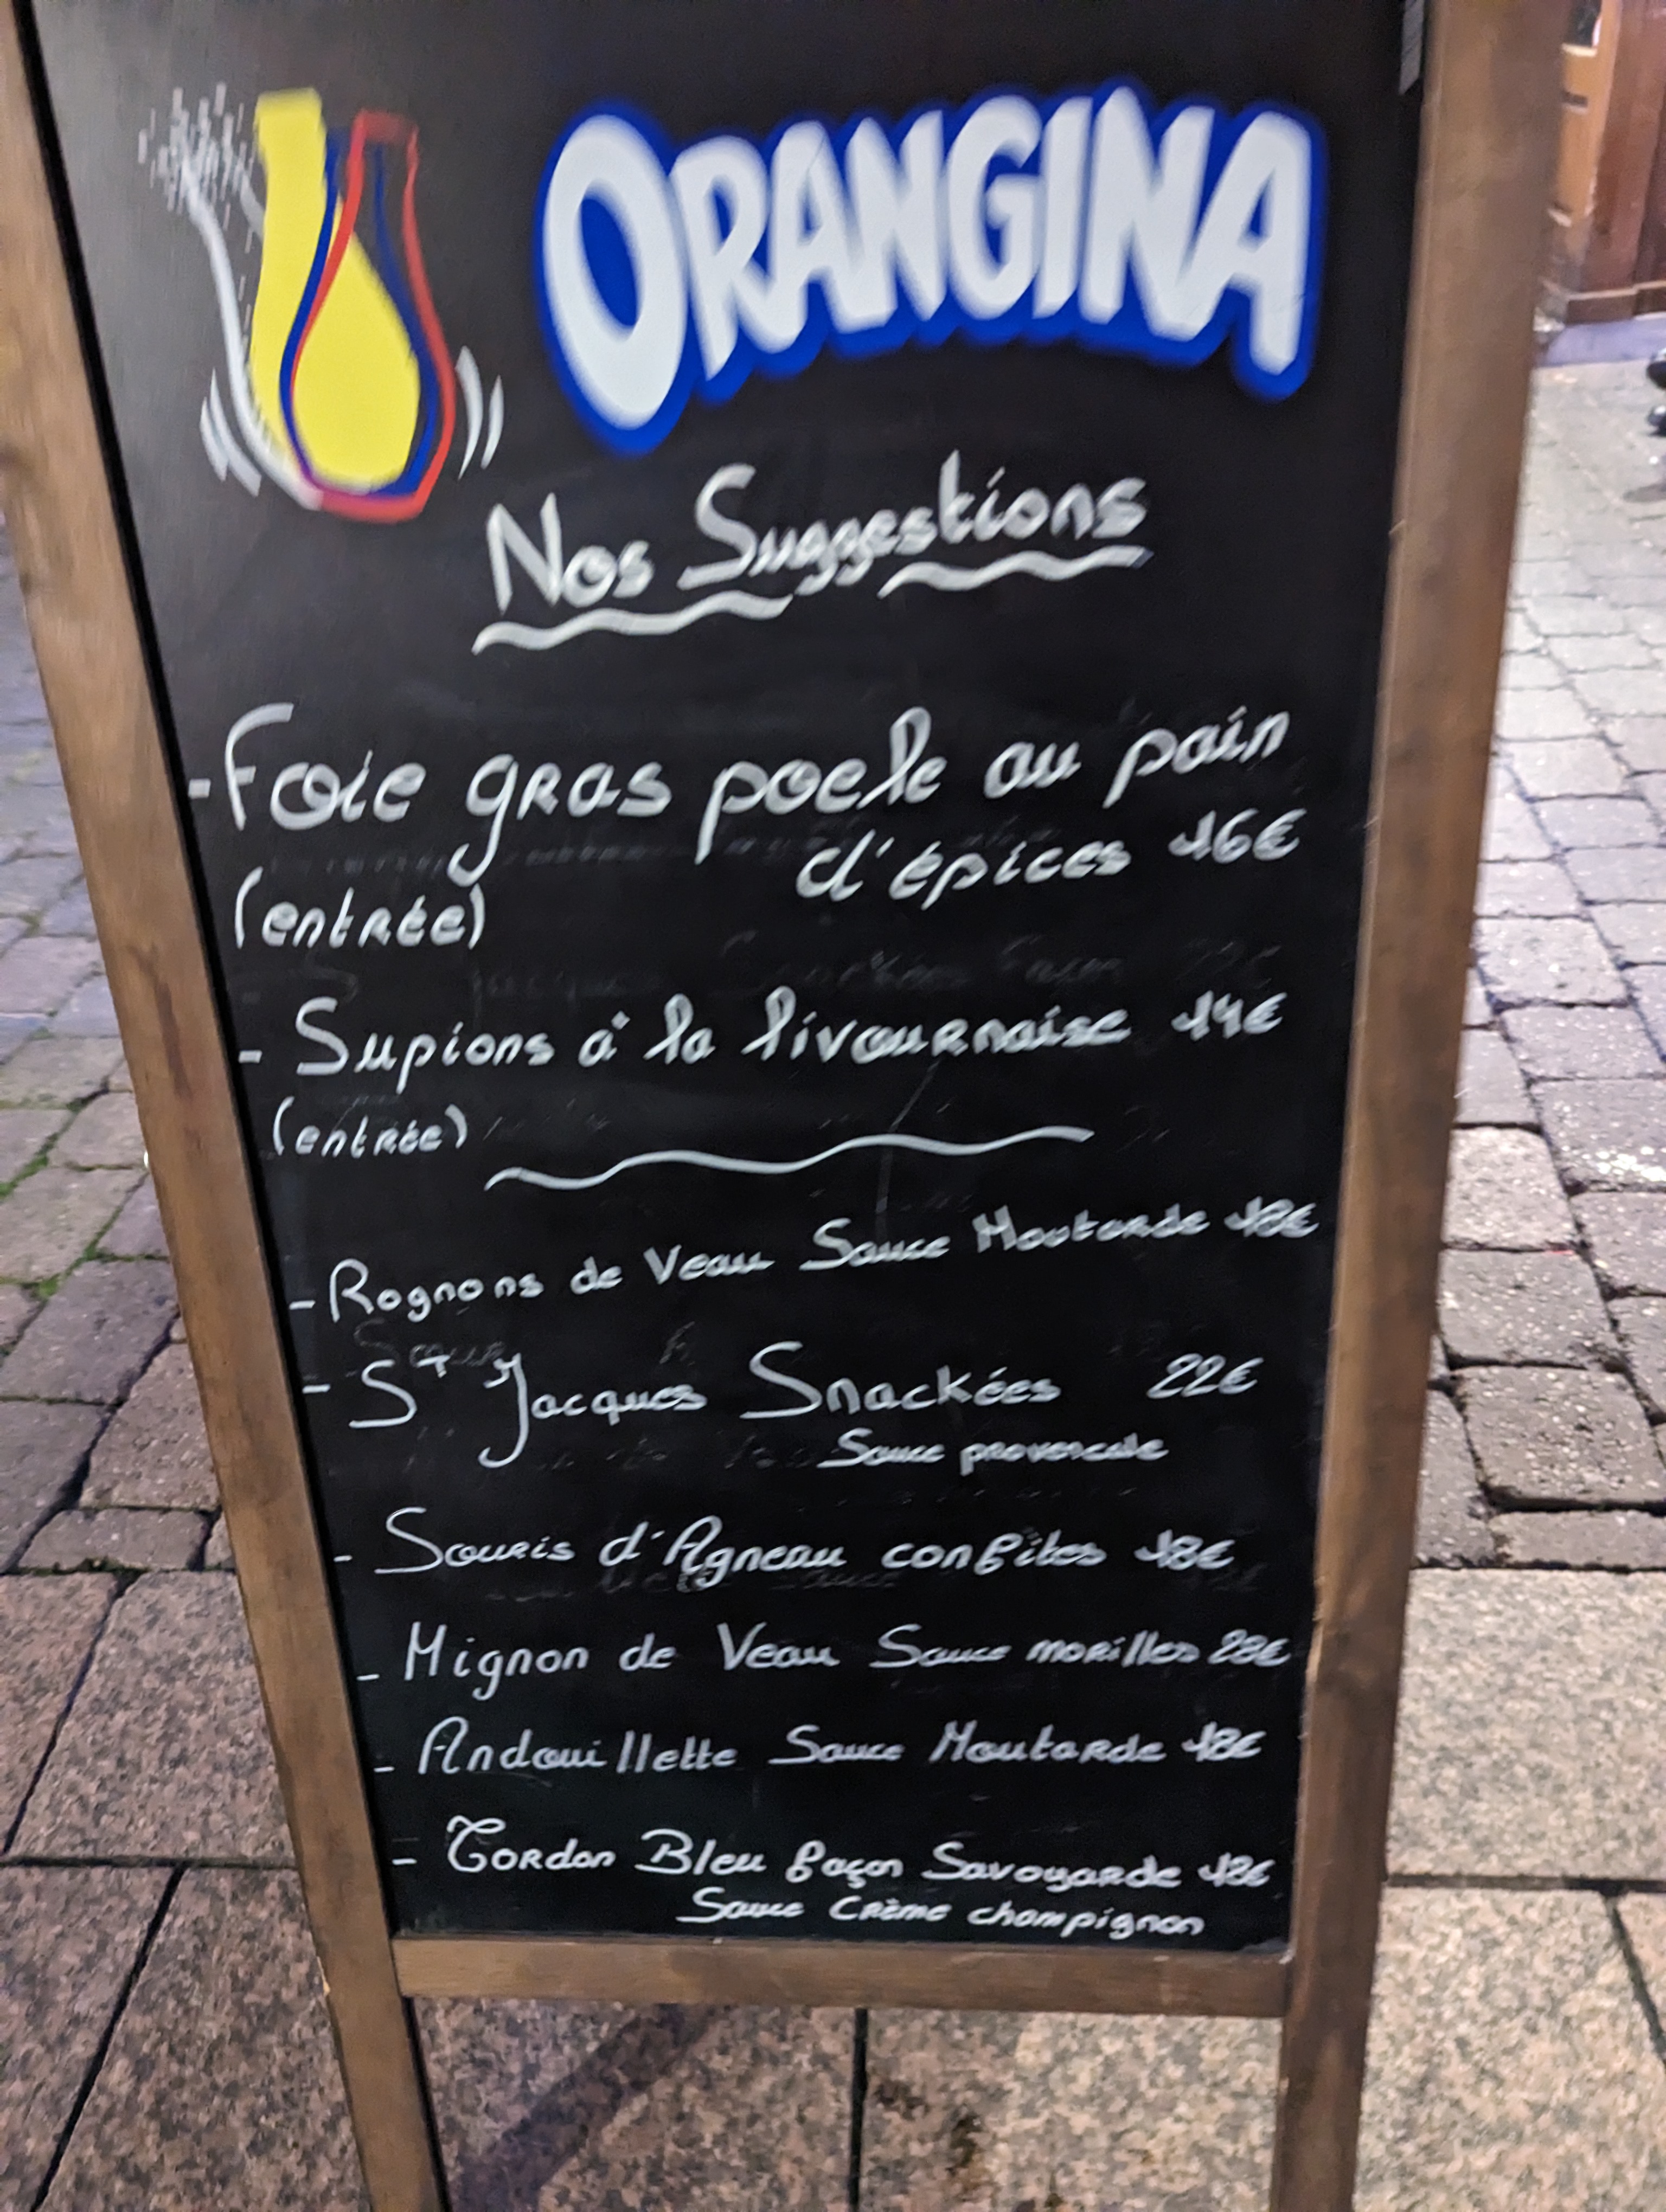 ORANGINA
Nos Suggestions
- Foie gras poele au pain
d'épices 16€
(entrée)
- Supions à la livournaise 14€
(entrée)
- Rognons de Veau Sauce Moutarde 18€
- St Jacques Snackées 22€
Sauce provencale
- Souris d'Agneau confites 18€
- Mignon de Veau Sauce morilles
- Andouillette Sauce Moutarde 18€
- Cordon Bleu façon Savoyarde 18€
Sauce Crème champignon